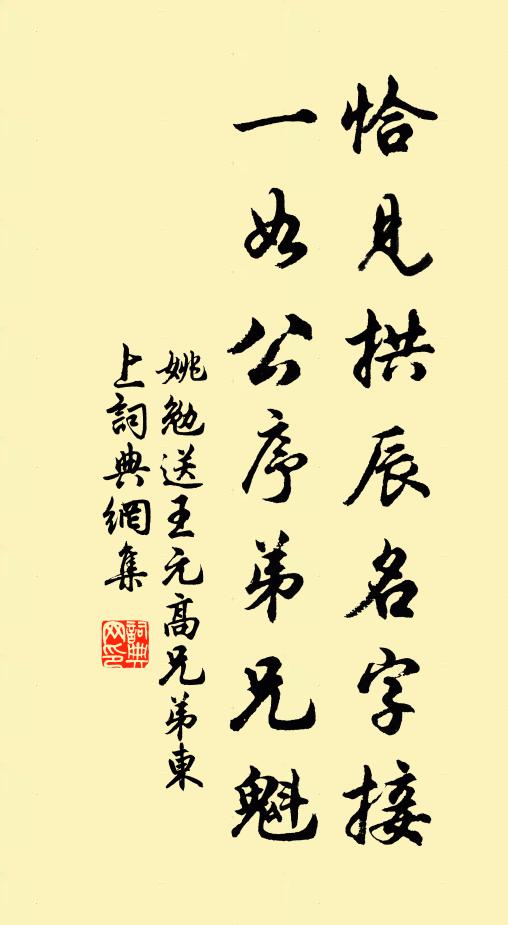 恰見拱辰名字接
一如公序弟兄魁
姚勉送王元高兄弟東
上詞典網集
詞典網印